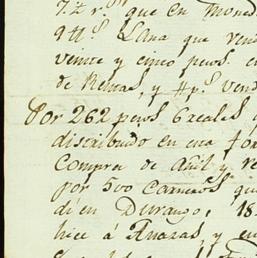 7. 2 r.s que en Moned
q tt.s Lana que vend
veinte y cinco pesos, c
de Reinas, y tt p.s vend
Por 262 pesos 6 reales q
distribudo en esa for
Compra de Añil y re
por 500 Carneros, que
di en Durango, 18
hice á Anazas, y en